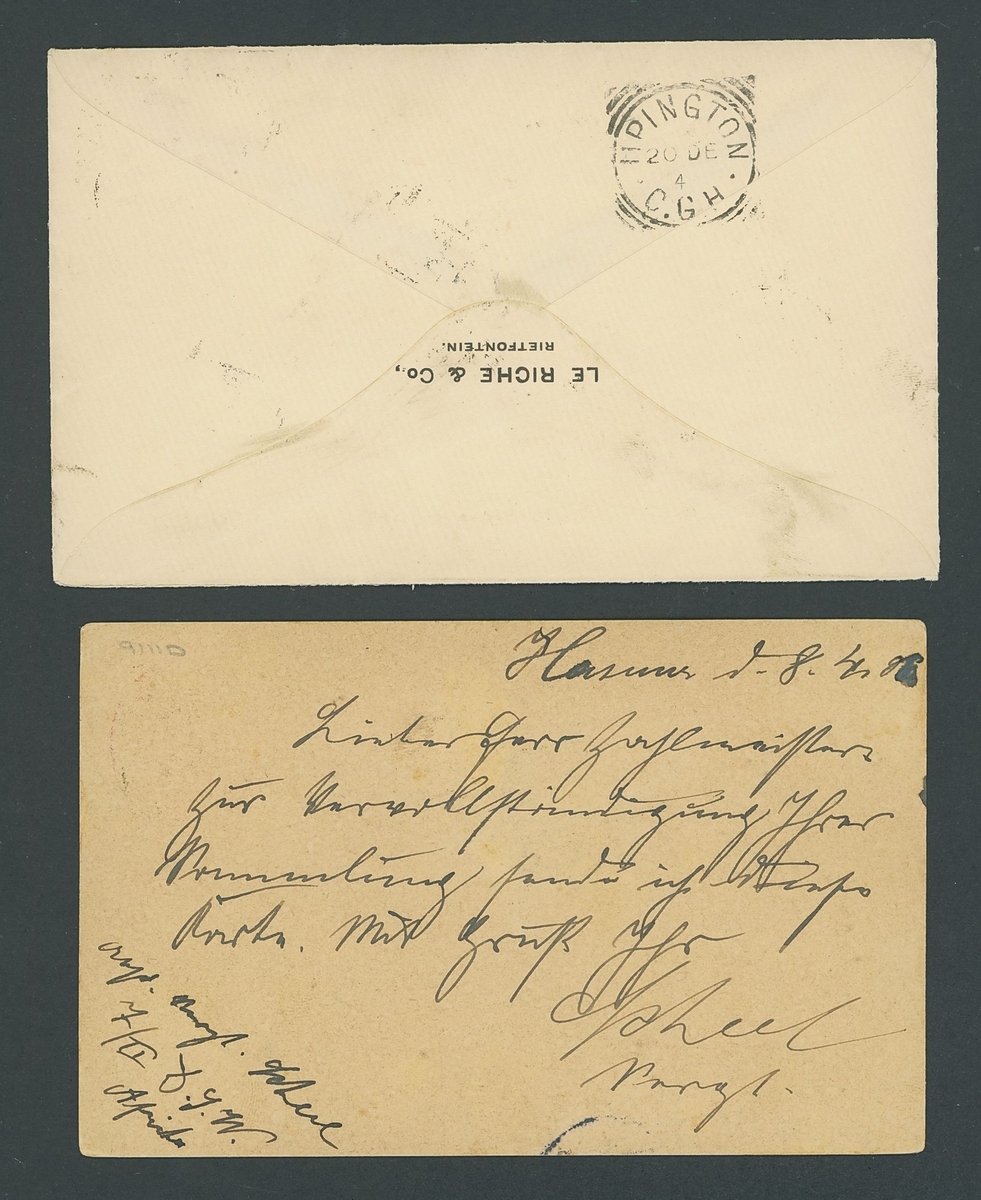 UPINGTON
20 DE
4
C.G.H.
LE RICHE & Co.,
RIETFONTEIN.
d. 8. 4. 06
Lieber Herr Zahlmeister
zur Vervollständigung Ihrer
Sammlung sende ich diese
Karte. Mit Gruß Ihr
Scheel
Sergt.
Sergt. Scheel